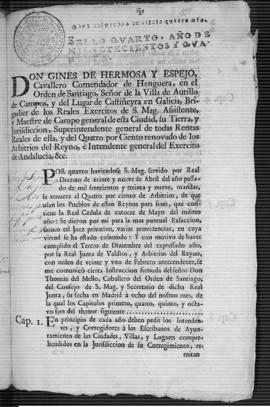 SELLO QUARTO, AÑO DE
DON GINES DE HERMOSA Y ESPEJO,
Cavallero Comendador de Henguera, en el
Orden de Santiago, Señor de la Villa de Autillo
de Campos, y del Lugar de Castiñeyra en Galicia, Bri-
gadier de los Reales Exercitos de S. Mag. Assistente,
y Maestre de Campo general de esta Ciudad, su Tierra, y
Jurisdiccion, Superintendente general de todas Rentas
Reales de ella, y del Quatro por Ciento renovado de los
Arbitrios del Reyno, è Intendente general del Exercito
de Andalucia, &c.
POR quanto haviendose S. Mag. servido por Real
Decreto de veinte y nueve de Abril del año passa-
do de mil setecientos y treinta y nueve, mandar,
se renueve el Quatro por ciento de Arbitrios, de que
usan los Pueblos de estos Reynos para fines, que con-
tiene la Real Cedula de catorce de Mayo del mismo
año; Se dieron por mi para la mas puntual Exaccion,
como tal Juez privativo, varias providencias, en cuya
virtud se ha estado cobrando: Y con motivo de haver
cumplido el Tercio de Diziembre del expressado año,
por la Real Junta de Valdios, y Arbitrios del Reyno,
con orden de veinte y uno de Febrero antecedente, se
me comunicò cierta Instruccion firmada del señor Don
Thomàs del Mello, Cavallero del Orden de Santiago,
del Consejo de S. Mag. y Secretario de dicha Real
Junta, su fecha en Madrid à ocho del mismo mes, de
la qual los Capitulos primero, quarto, quinto, y octa-
vo son del thenor siguiente
Cap. 1. En principio de cada año deben pedir los Intenden-
tes, y Corregidores à los Escribanos de Ayun-
tamiento de las Ciudades, Villas, y Lugares compre-
hendidos en la Jurisdiccion de su Corregimiento, re-
mitan